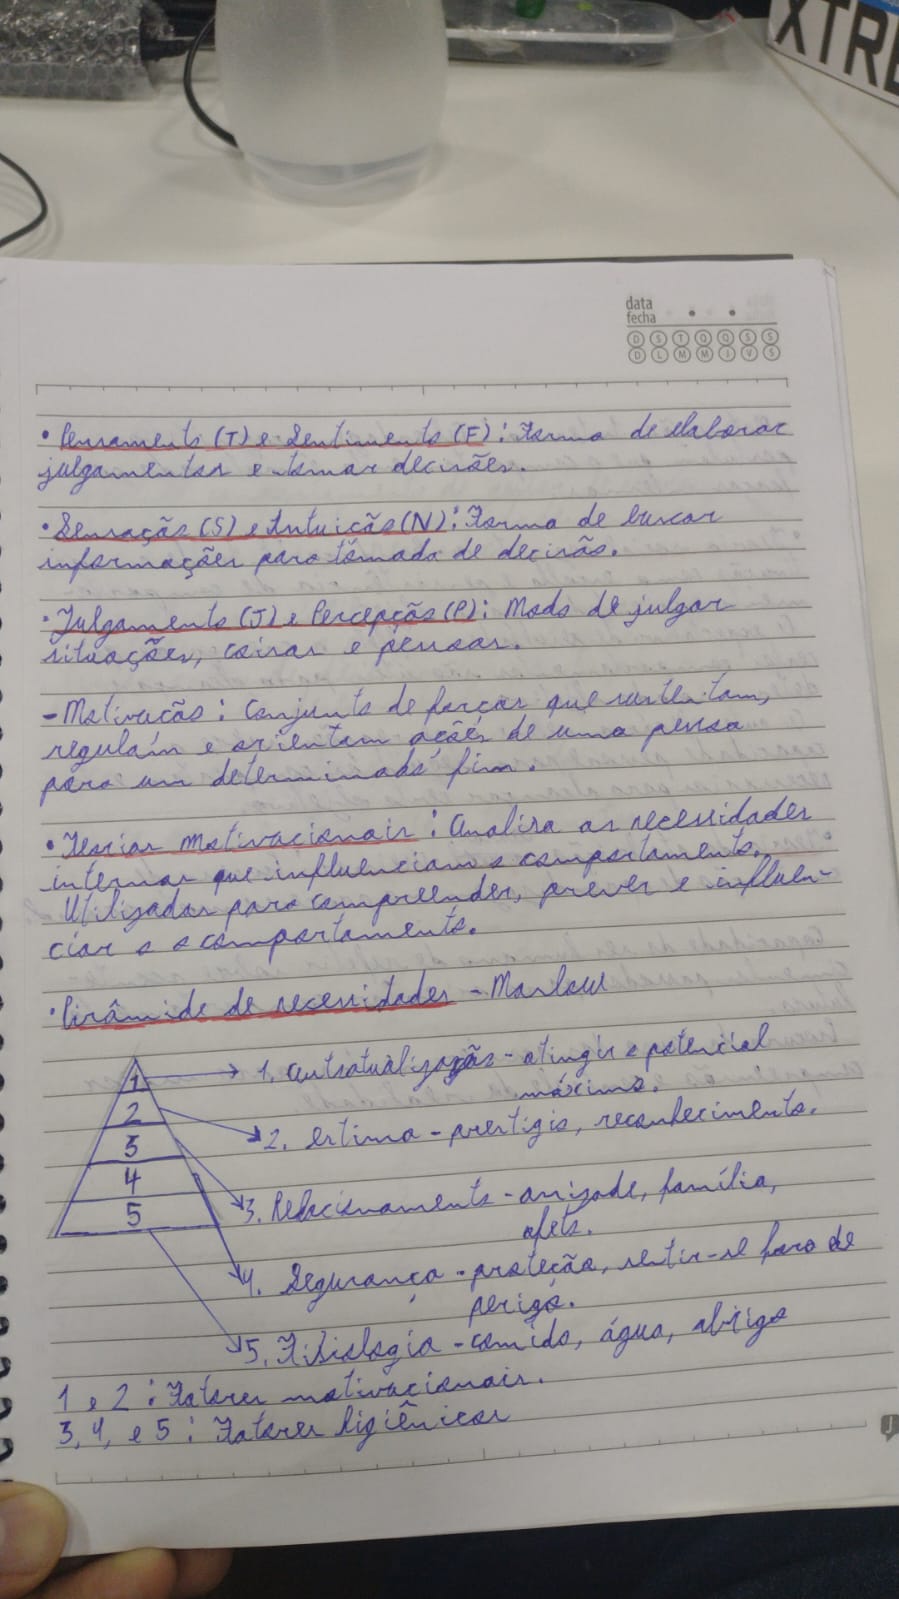 XTRE
data
fecha
D S T Q Q S S
D L M M J V S
• Pensamento (T) e Sentimento (F): Forma de elaborar
julgamentos e tomar decisões.
• Sensação (S) e Intuição (N): Forma de buscar
informações para tomada de decisão.
• Julgamento (J) e Percepção (P): Modo de julgar
situações, coisas e pensar.
- Motivação: Conjunto de forças que sustentam,
regulam e orientam ações de uma pessoa
para um determinado fim.
• Teorias motivacionais: Analisa as necessidades
internas que influenciam o comportamento.
Utilizadas para compreender, prever e influen-
ciar o o comportamento.
• Pirâmide de necessidades - Maslow
1 → 1. autoatualização - atingir o potencial
máximo.
2 → 2. estima - prestígio, reconhecimento.
3 → 3. Relacionamento - amizade, família,
afeto.
4 → 4. Segurança - proteção, sentir-se fora de
perigo.
5 → 5. Fisiologia - comida, água, abrigo
1 e 2: Fatores motivacionais.
3, 4, e 5: Fatores higiênicos
J